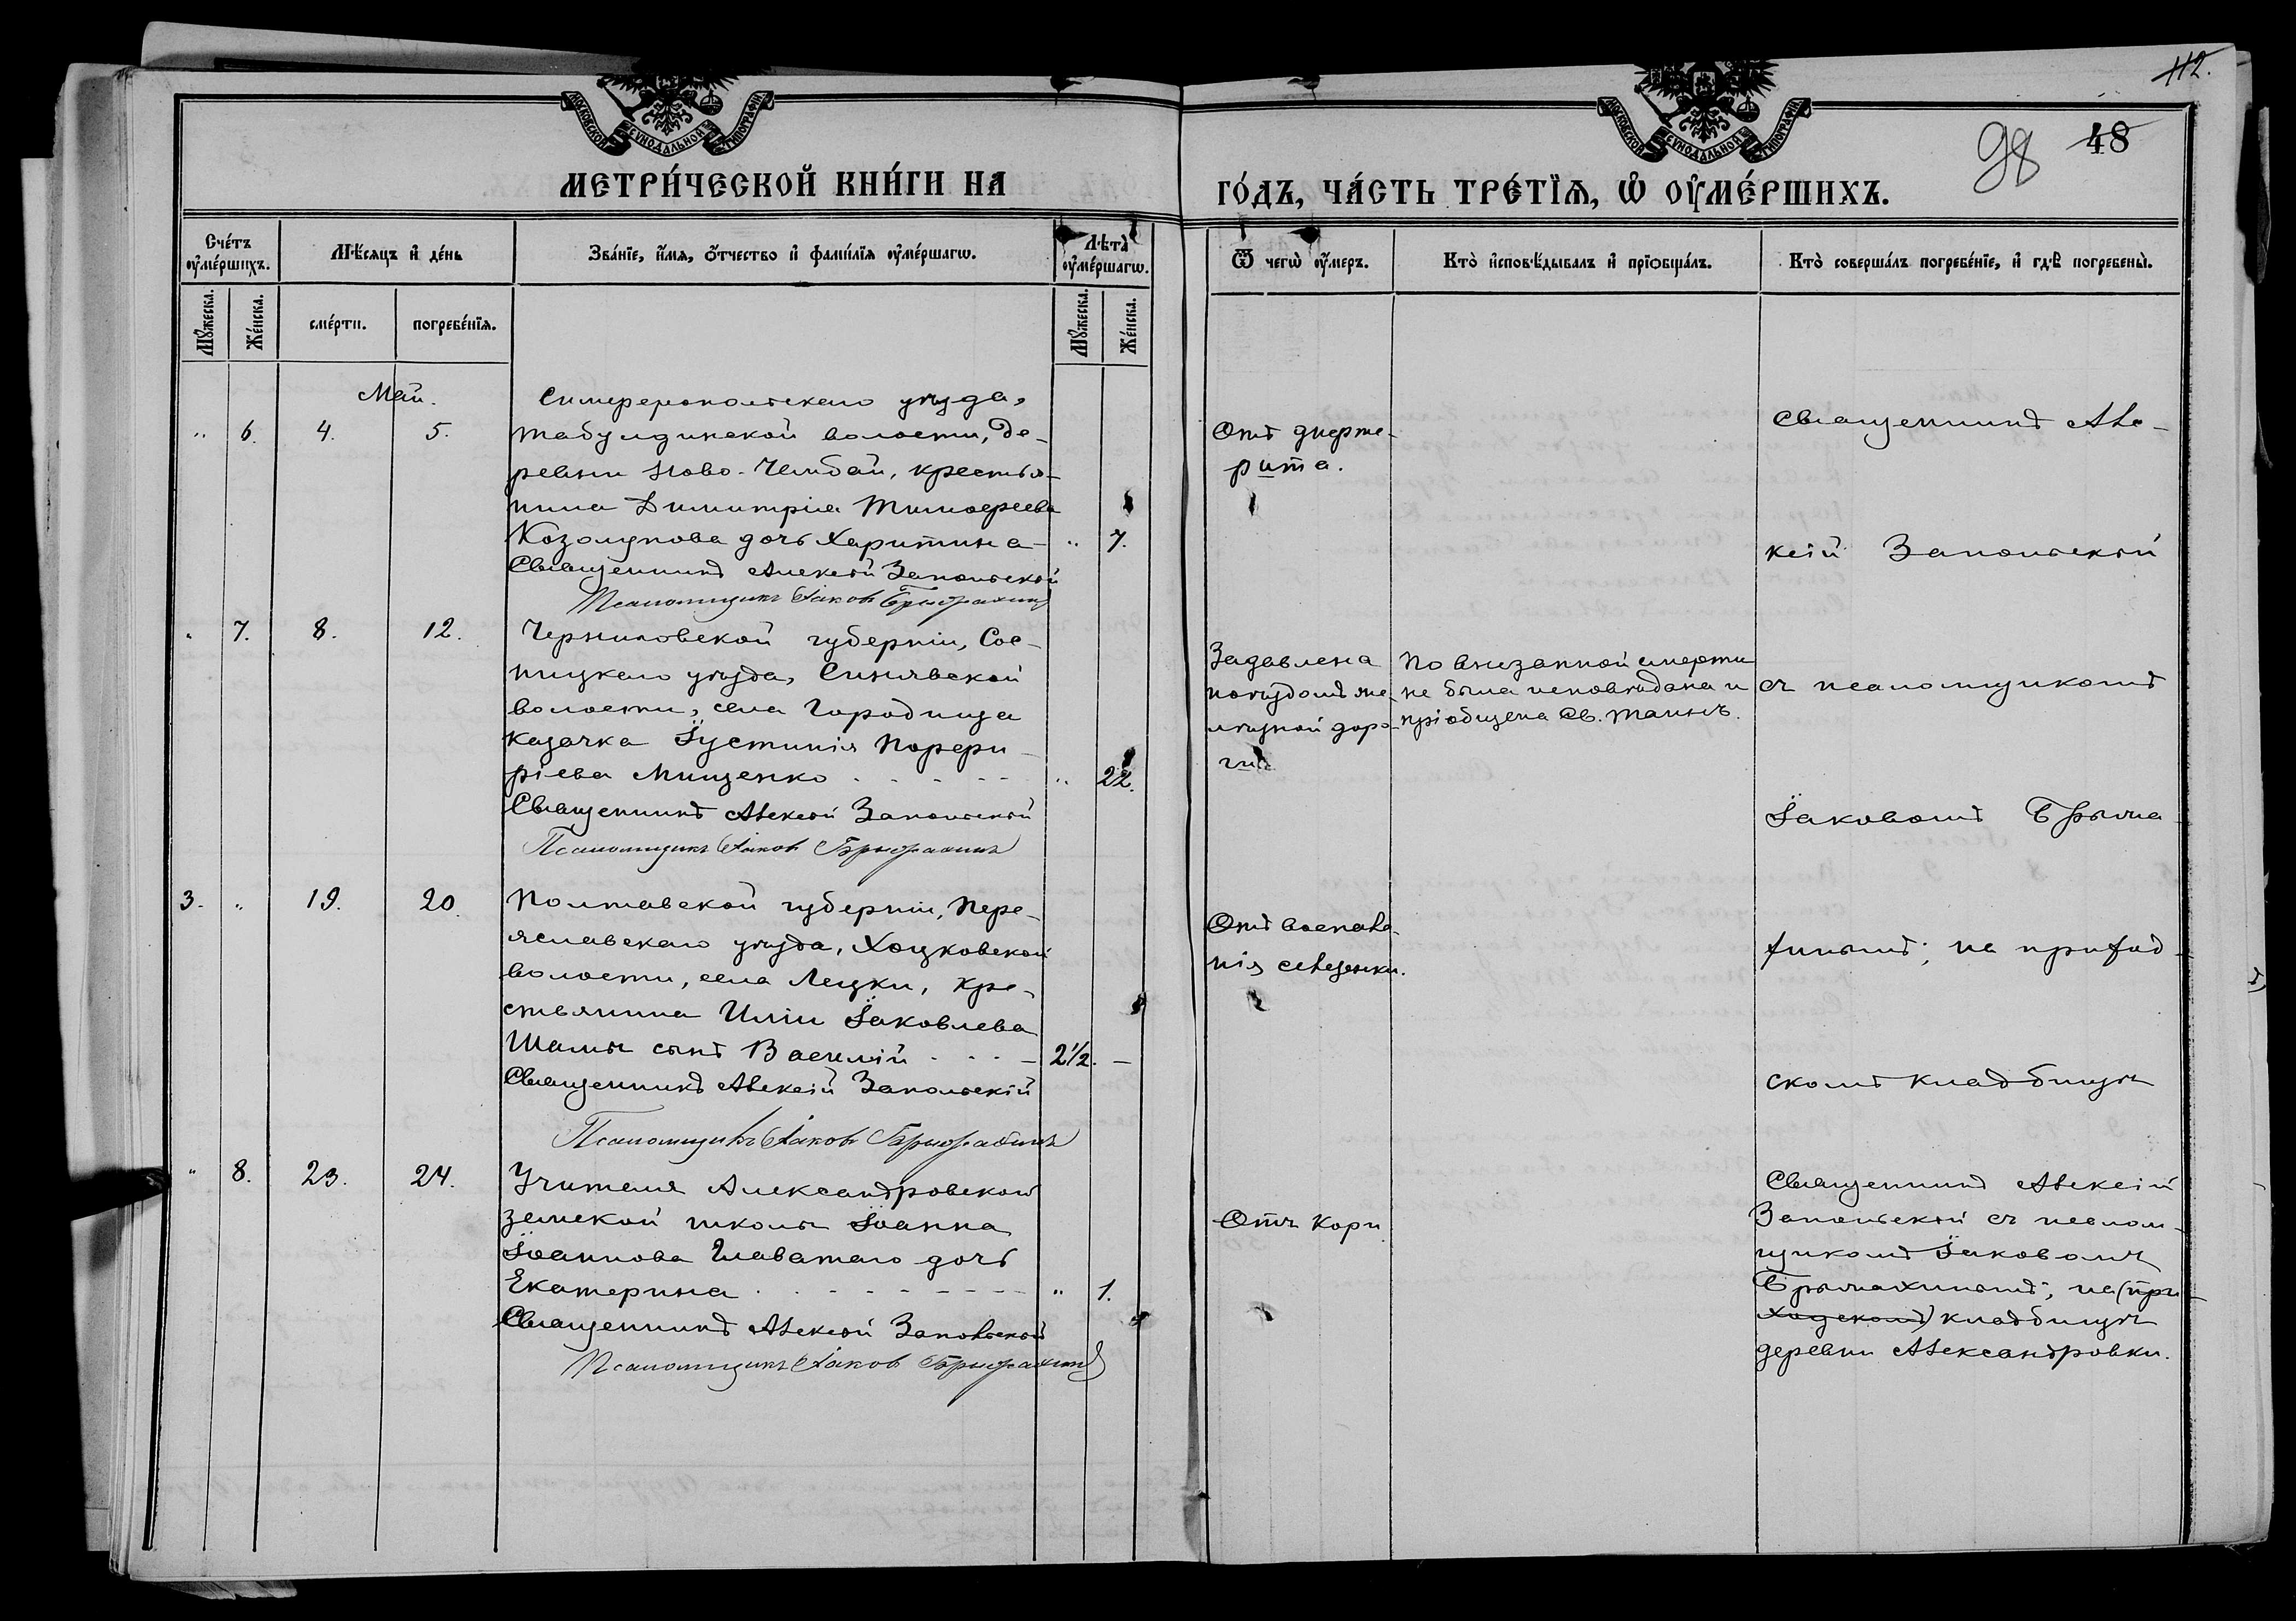 112.
98 48
МОСКОВСКОЙ СѴНОДАЛЬНОЙ ТИПОГРАФІИ
МОСКОВСКОЙ СѴНОДАЛЬНОЙ ТИПОГРАФІИ
МЕТРИ́ЧЕСКОЙ КНИ́ГИ НА
ГО́ДЪ, ЧА́СТЬ ТРЕ́ТІѦ, Ѡ҆ ОУ҆МЕ́РШИХЪ.
Сче́тъ
оу҆ме́ршихъ.
Мꙋ́жеска.
Же́нска.
Мѣ́сяцъ и҆ де́нь
сме́рти.
погребе́нїѧ.
Зва́нїе, и҆́мѧ, ѻ҆́тчество и҆ фами́лїѧ оу҆ме́ршагѡ.
Лѣта̀
оу҆ме́ршагѡ.
Мꙋ́жеска.
Же́нска.
Ѿ чегѡ̀ оу҆́меръ.
Кто̀ и҆сповѣ́дывалъ и҆ прїѻбща́лъ.
Кто̀ соверша́лъ погребе́нїе, и҆ гдѣ̀ погребены̀.
Май.
" 6. 4. 5.
Симферопольскаго уѣзда,
Табулдинской волости, де-
ревни Ново-Чембай, крестья-
нина Димитрія Тимоѳеева
Козолупова дочь Харитина - " 7.
Священникъ Алексѣй Запольскій
Псаломщикъ Іаковъ Брымахинъ
Отъ дифте-
рита.
Священникъ Але-
ксій Запольскій
" 7. 8. 12.
Черниговской губерніи, Сос-
ницкаго уѣзда, Синявской
волости, села Городища
казачка Іустинія Порфи-
ріева Мищенко - - - - - " 22.
Священникъ Алексѣй Запольскій
Псаломщикъ Іаковъ Брымахинъ
Задавлена
поѣздомъ же-
лѣзной доро-
ги.
По внезапной смерти
не была исповѣдана и
пріобщена Св. Таинъ.
съ псаломщикомъ
Іаковомъ Брыма-
3. " 19. 20.
Полтавской губерніи, Пере-
яславскаго уѣзда, Хоцковской
волости, села Лецки, кре-
стьянина Иліи Іаковлева
Шамы сынъ Василій - - - - 2½. -
Священникъ Алексій Запольскій
Псаломщикъ Іаковъ Брымахинъ
Отъ воспале-
нія селезенки.
хинымъ; на приход-
скомъ кладбищѣ
" 8. 23. 24.
Учителя Александровской
земской школы Іоанна
Іоаннова Главатаго дочь
Екатерина - - - - - - - " 1.
Священникъ Алексѣй Запольскій
Псаломщикъ Іаковъ Брымахинъ
Отъ кори
Священникъ Алексій
Запольскій съ псалом-
щикомъ Іаковомъ
Брымахинымъ; на (при-
ходскомъ) кладбищѣ
деревни Александровки.